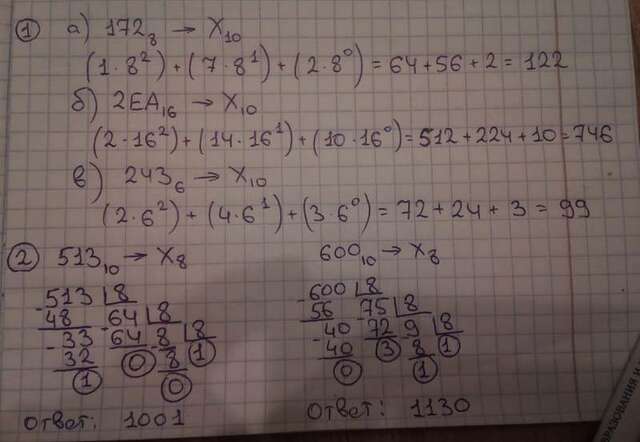 ① а) 172₈ → X₁₀
(1·8²) + (7·8¹) + (2·8⁰) = 64+56+2 = 122
б) 2EA₁₆ → X₁₀
(2·16²)+(14·16¹)+(10·16⁰)=512+224+10=746
в) 243₆ → X₁₀
(2·6²) + (4·6¹)+(3·6⁰) = 72+24+3 = 99
② 513₁₀ → X₈
-513 |8
48 -64 |8
-33 64 -8 |8
32 ⓪ 8 ①
① ⓪
Ответ: 1001
600₁₀ → X₈
-600 |8
56 -75 |8
-40 72 -9 |8
40 ③ 8 ①
⓪ ①
Ответ: 1130